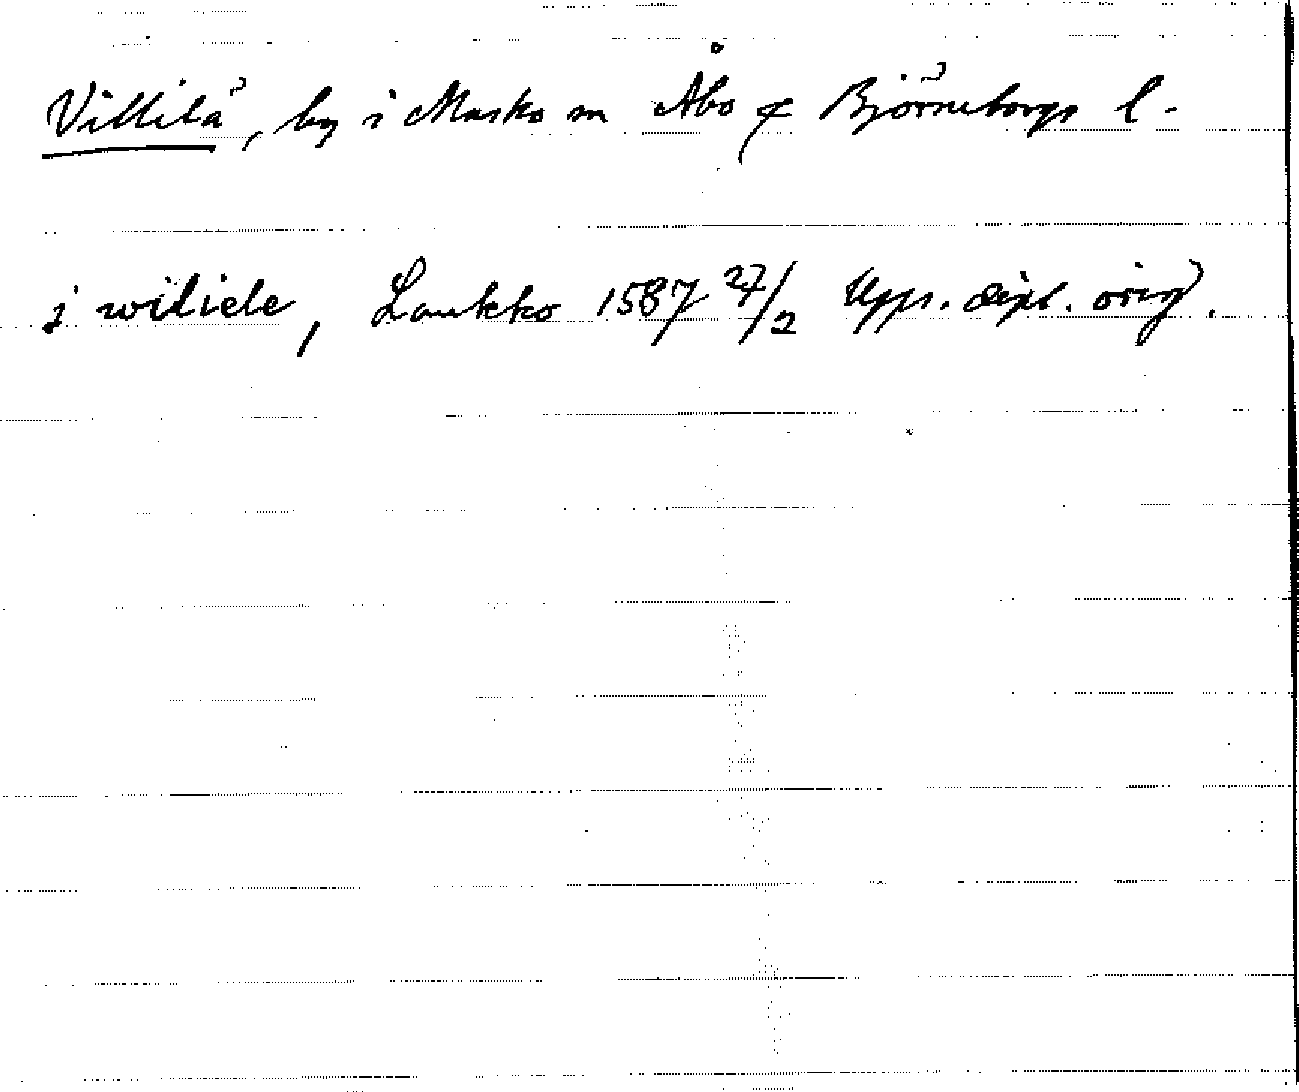 Villilä, by i Masko sn Åbo & Björneborgs l.
i wiliele, Laukko 1587 27/2 Upps. dipl. orig.